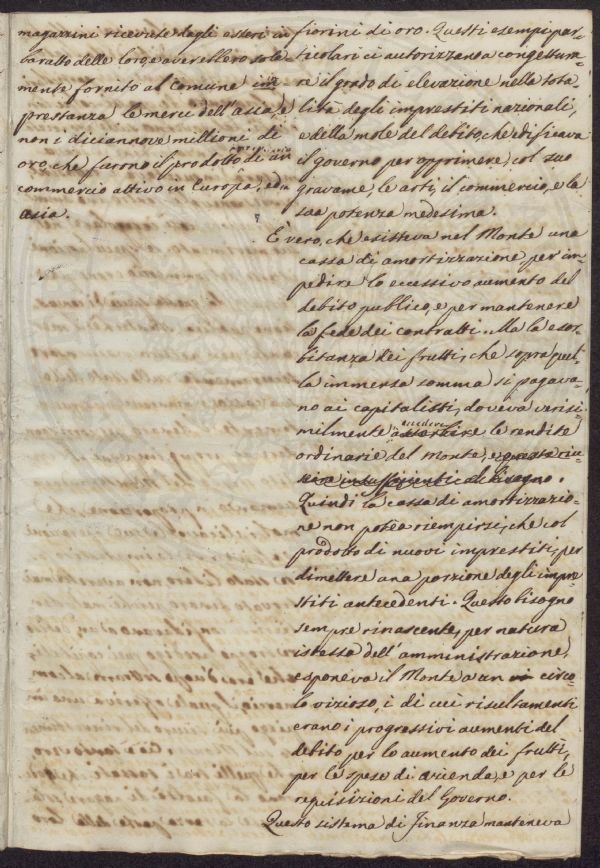 magazzini ricevute dagli esteri in
baratto delle loro, e avrebbero sola-
mente fornito al comune in
prestanza le merci dell'asia, e
non i diciannove millioni di
oro, che furono il prodotto di un
commercio attivo in Europa, ed in
asia.
fiorini di oro. Questi esempi par-
ticolari ci autorizzano a congettura-
re il grado di elevazione nella tota-
lità degli imprestiti nazionali,
e della mole del debito, che edificava
il governo per opprimere, col suo
gravame, le arti, il commercio, e la
sua potenza medesima.
È vero, che esisteva nel Monte una
cassa di amortizzazione per im-
pedire lo eccessivo aumento del
debito publico, e per mantenere
la fede dei contratti. Ma la esor-
bitanza dei frutti, che sopra quel-
la immensa somma si pagava-
no ai capitalisti, doveva verisi-
eccedere
milmente assorbire le rendite
ordinarie del Monte, e queste riu-
scire insufficienti al bisogno.
Quindi la cassa di amortizzazio-
ne non potea riempirsi, che col
prodotto di nuovi imprestiti, per
dimettere una porzione degli impre-
stiti antecedenti. Questo bisogno
sempre rinascente, per natura
istessa dell'amministrazione,
esponeva il Monte a un circo-
lo vizioso, i di cui risultamenti
erano i progressivi aumenti del
debito per lo aumento dei frutti,
per le spese di azienda, e per le
requisizioni del Governo.
Questo sistema di finanza manteneva